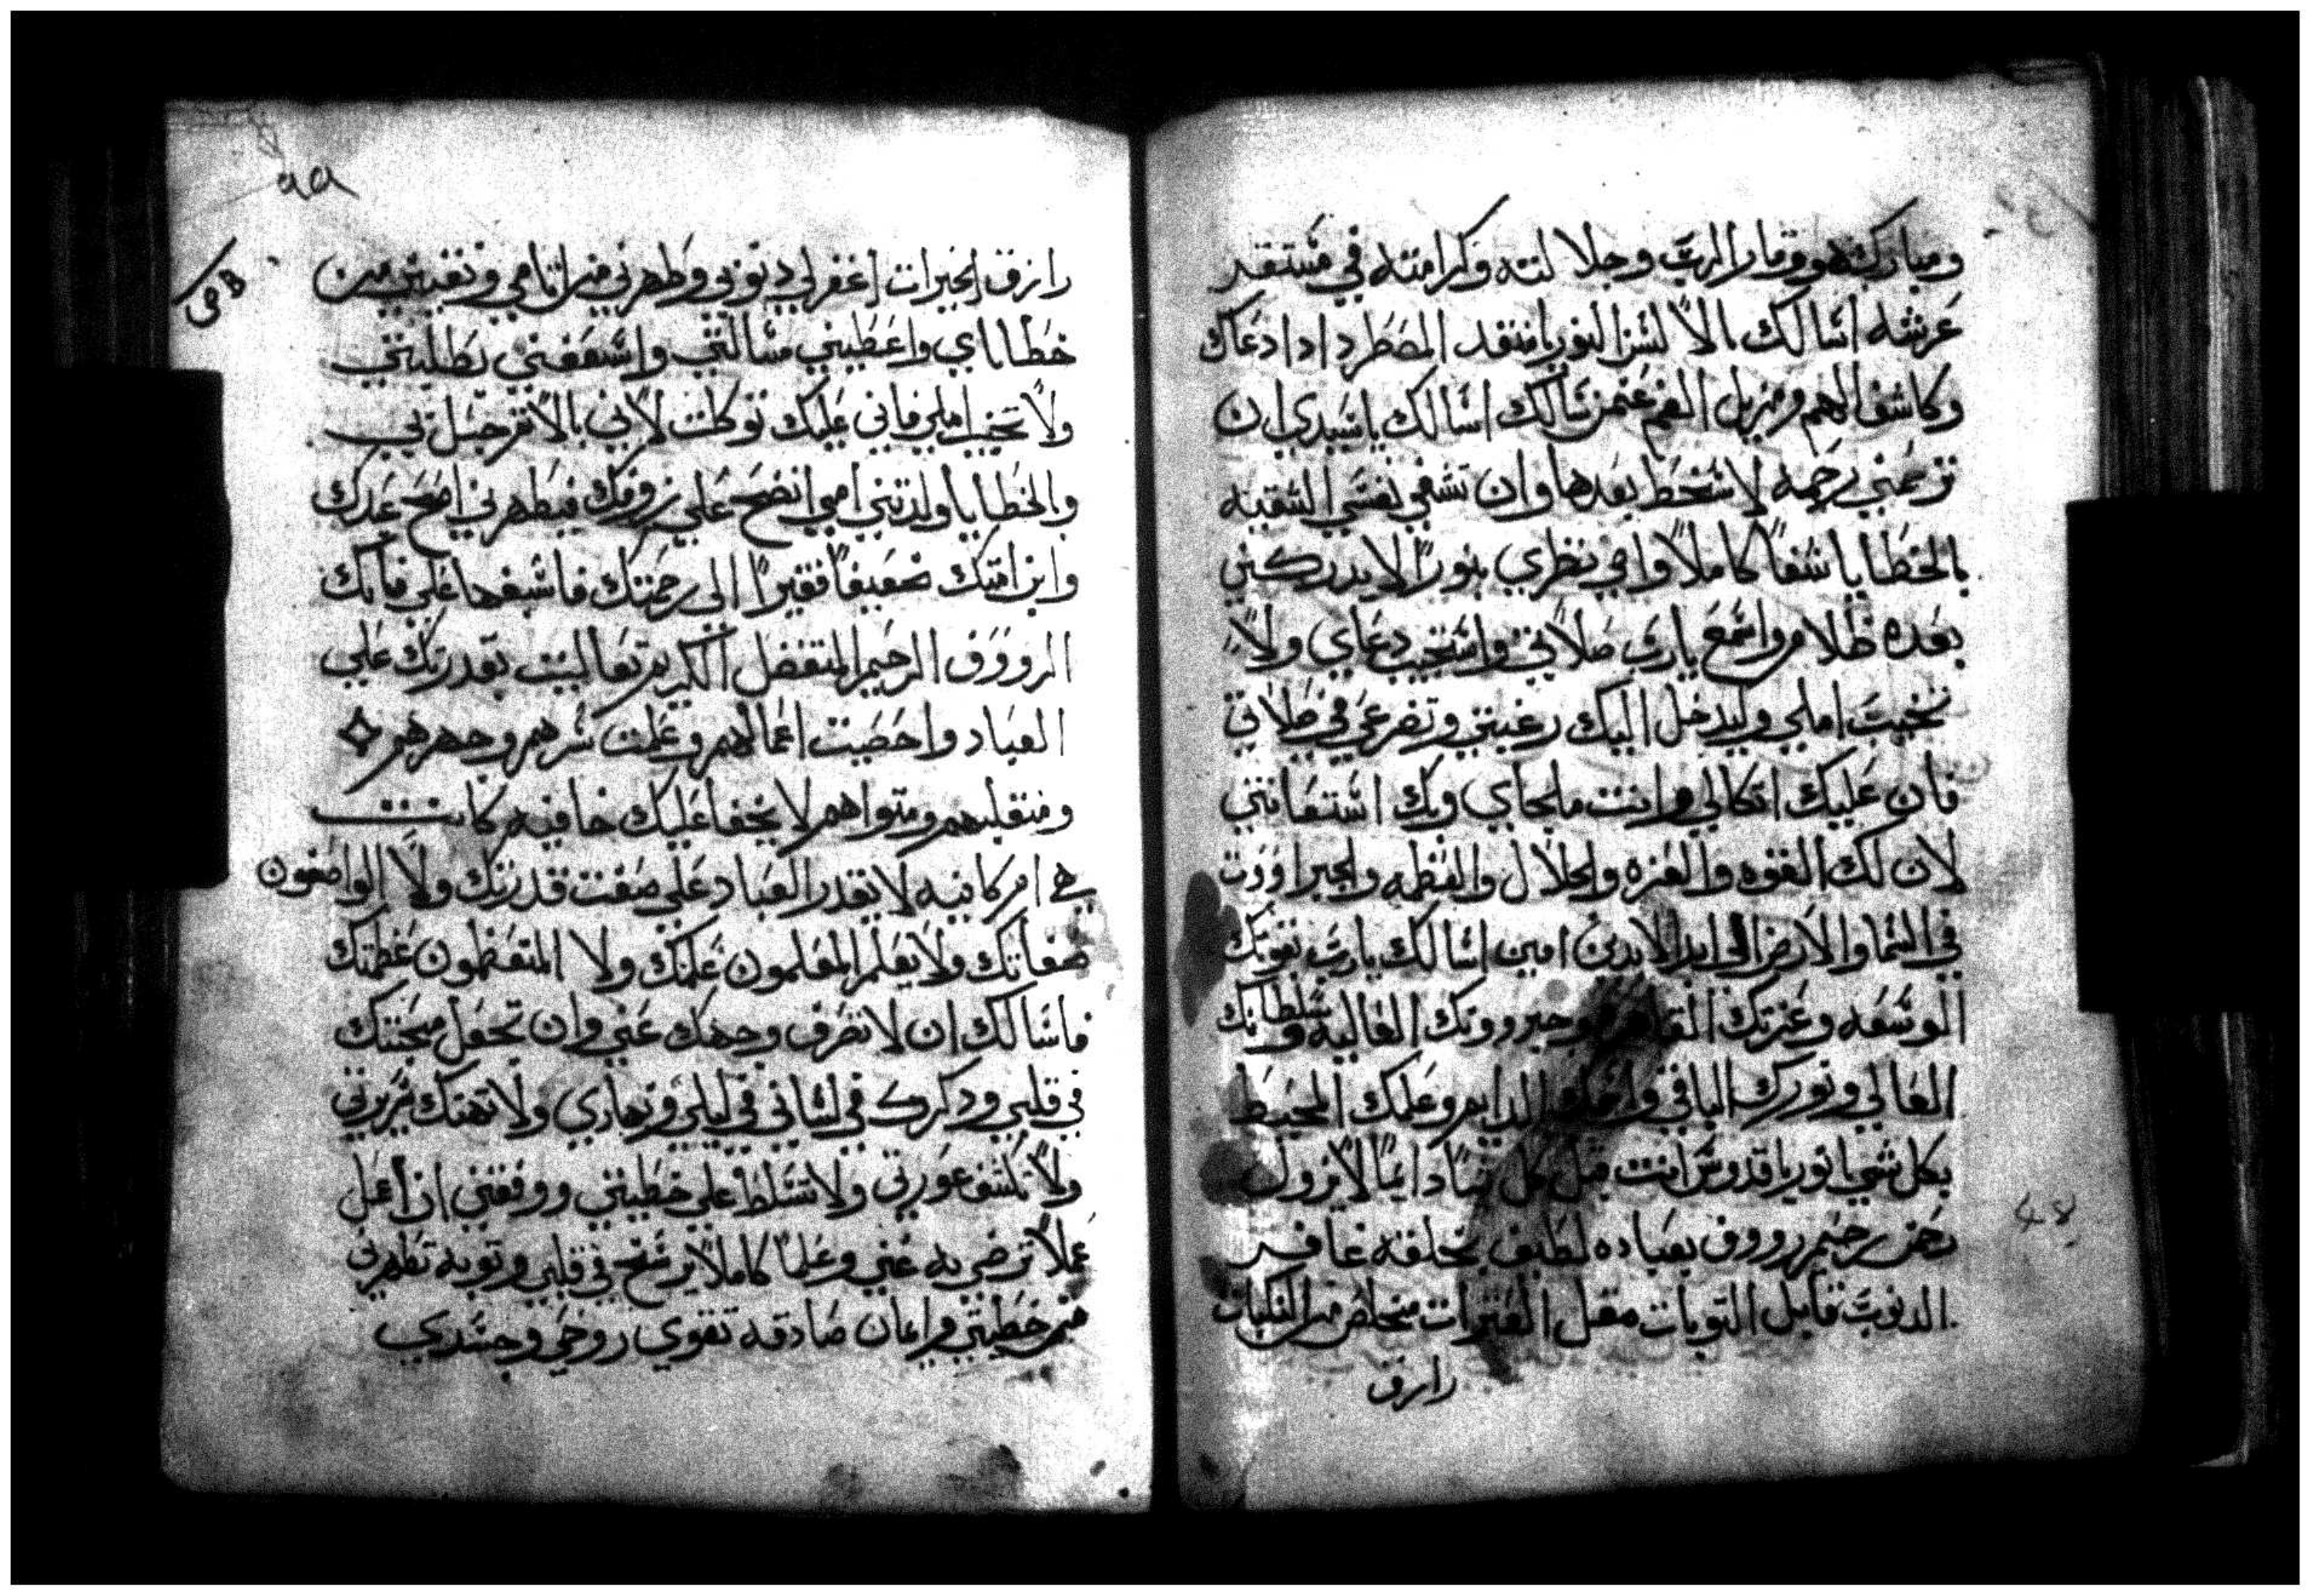 ومباركته ووقار الرب وجلا لته وكرامته في مستقر
عرشه اسالك بالا لسن النور يا منقد المضطر ادا دعاك
وكاشف الهم ومزيل الغم عمن سالك اسالك يا سيدي ان
ترحمني رحمه لا سخط بعدها وان تشفي نفسي الشقيه
بالخطايا شفاً كاملاً وامي نظري بنوراً لا يدركني
بعده ظلام واسمع يارب صلاتي واستجيب دعاي ولا
تخيب املي وليدخل اليك رغبتي وتضرعي في صلاتي
فان عليك اتكالي وانت ملجاي وبك استغاثتي
لان لك القوه والعزه والجلال والعظمه والجبراووت
في السما والارض الى ابد الابدين امين اسالك يارب بقوتك
الوسعه وعزتك القاهره وجبرووتك الغاليه وسلطانك
العالي ونورك الباقي الدايم وعلمك المحيط
بكل شي يانور ياقدوس انت قبل كل شيا دايمًا لا يزول
رحمن رحيم رووف بعباده لطيف بخلقه غافر
الدنوب قابل التوبات مقل العترات مخلص من النكبات
رازق
٩٩
رازق الخيرات اغفر لي دنوبي وطهرني من اتامي ونقيني من
خطاياي واعطيني مسالتي واسعفني بطلبتي
ولا تخيب املي فاني عليك توكلت لاني بالاتم حبل بي
والخطايا ولدتني امي انضح علي زوفك فيطهرني امح عبدك
وابن امتك ضعيفاً فقيراً الي رحمتك فاشبغها علي فانك
الرووف الرحيم المتفضل الكريم تعاليت بقدرتك علي
العباد واحصيت اعمالهم وعلمت سرهم وجهرهم
ومنقلبهم ومتواهم لا يخفا عليك خافيه كانت
هي ام كاينه لا يقدر العباد علي صفت قدرتك ولا الواصفون
صفاتك ولا يعلم المعلمون علمك ولا المتعظمون عظمتك
فاسالك ان لا تصرف وجهك عني وان تجعل محبتك
في قلبي ودكرك في لساني في ليلي ونهاري ولا تهتك سريرتي
ولا تكشف عورتي ولا تسلط علي خطيتي ووفقني ان اعمل
عملاً ترضي به عني وعلماً كاملاً يرسخ في قلبي وتوبه تطهرني
من خطيتي وايمان صادقه تقوي روحي وجسدي